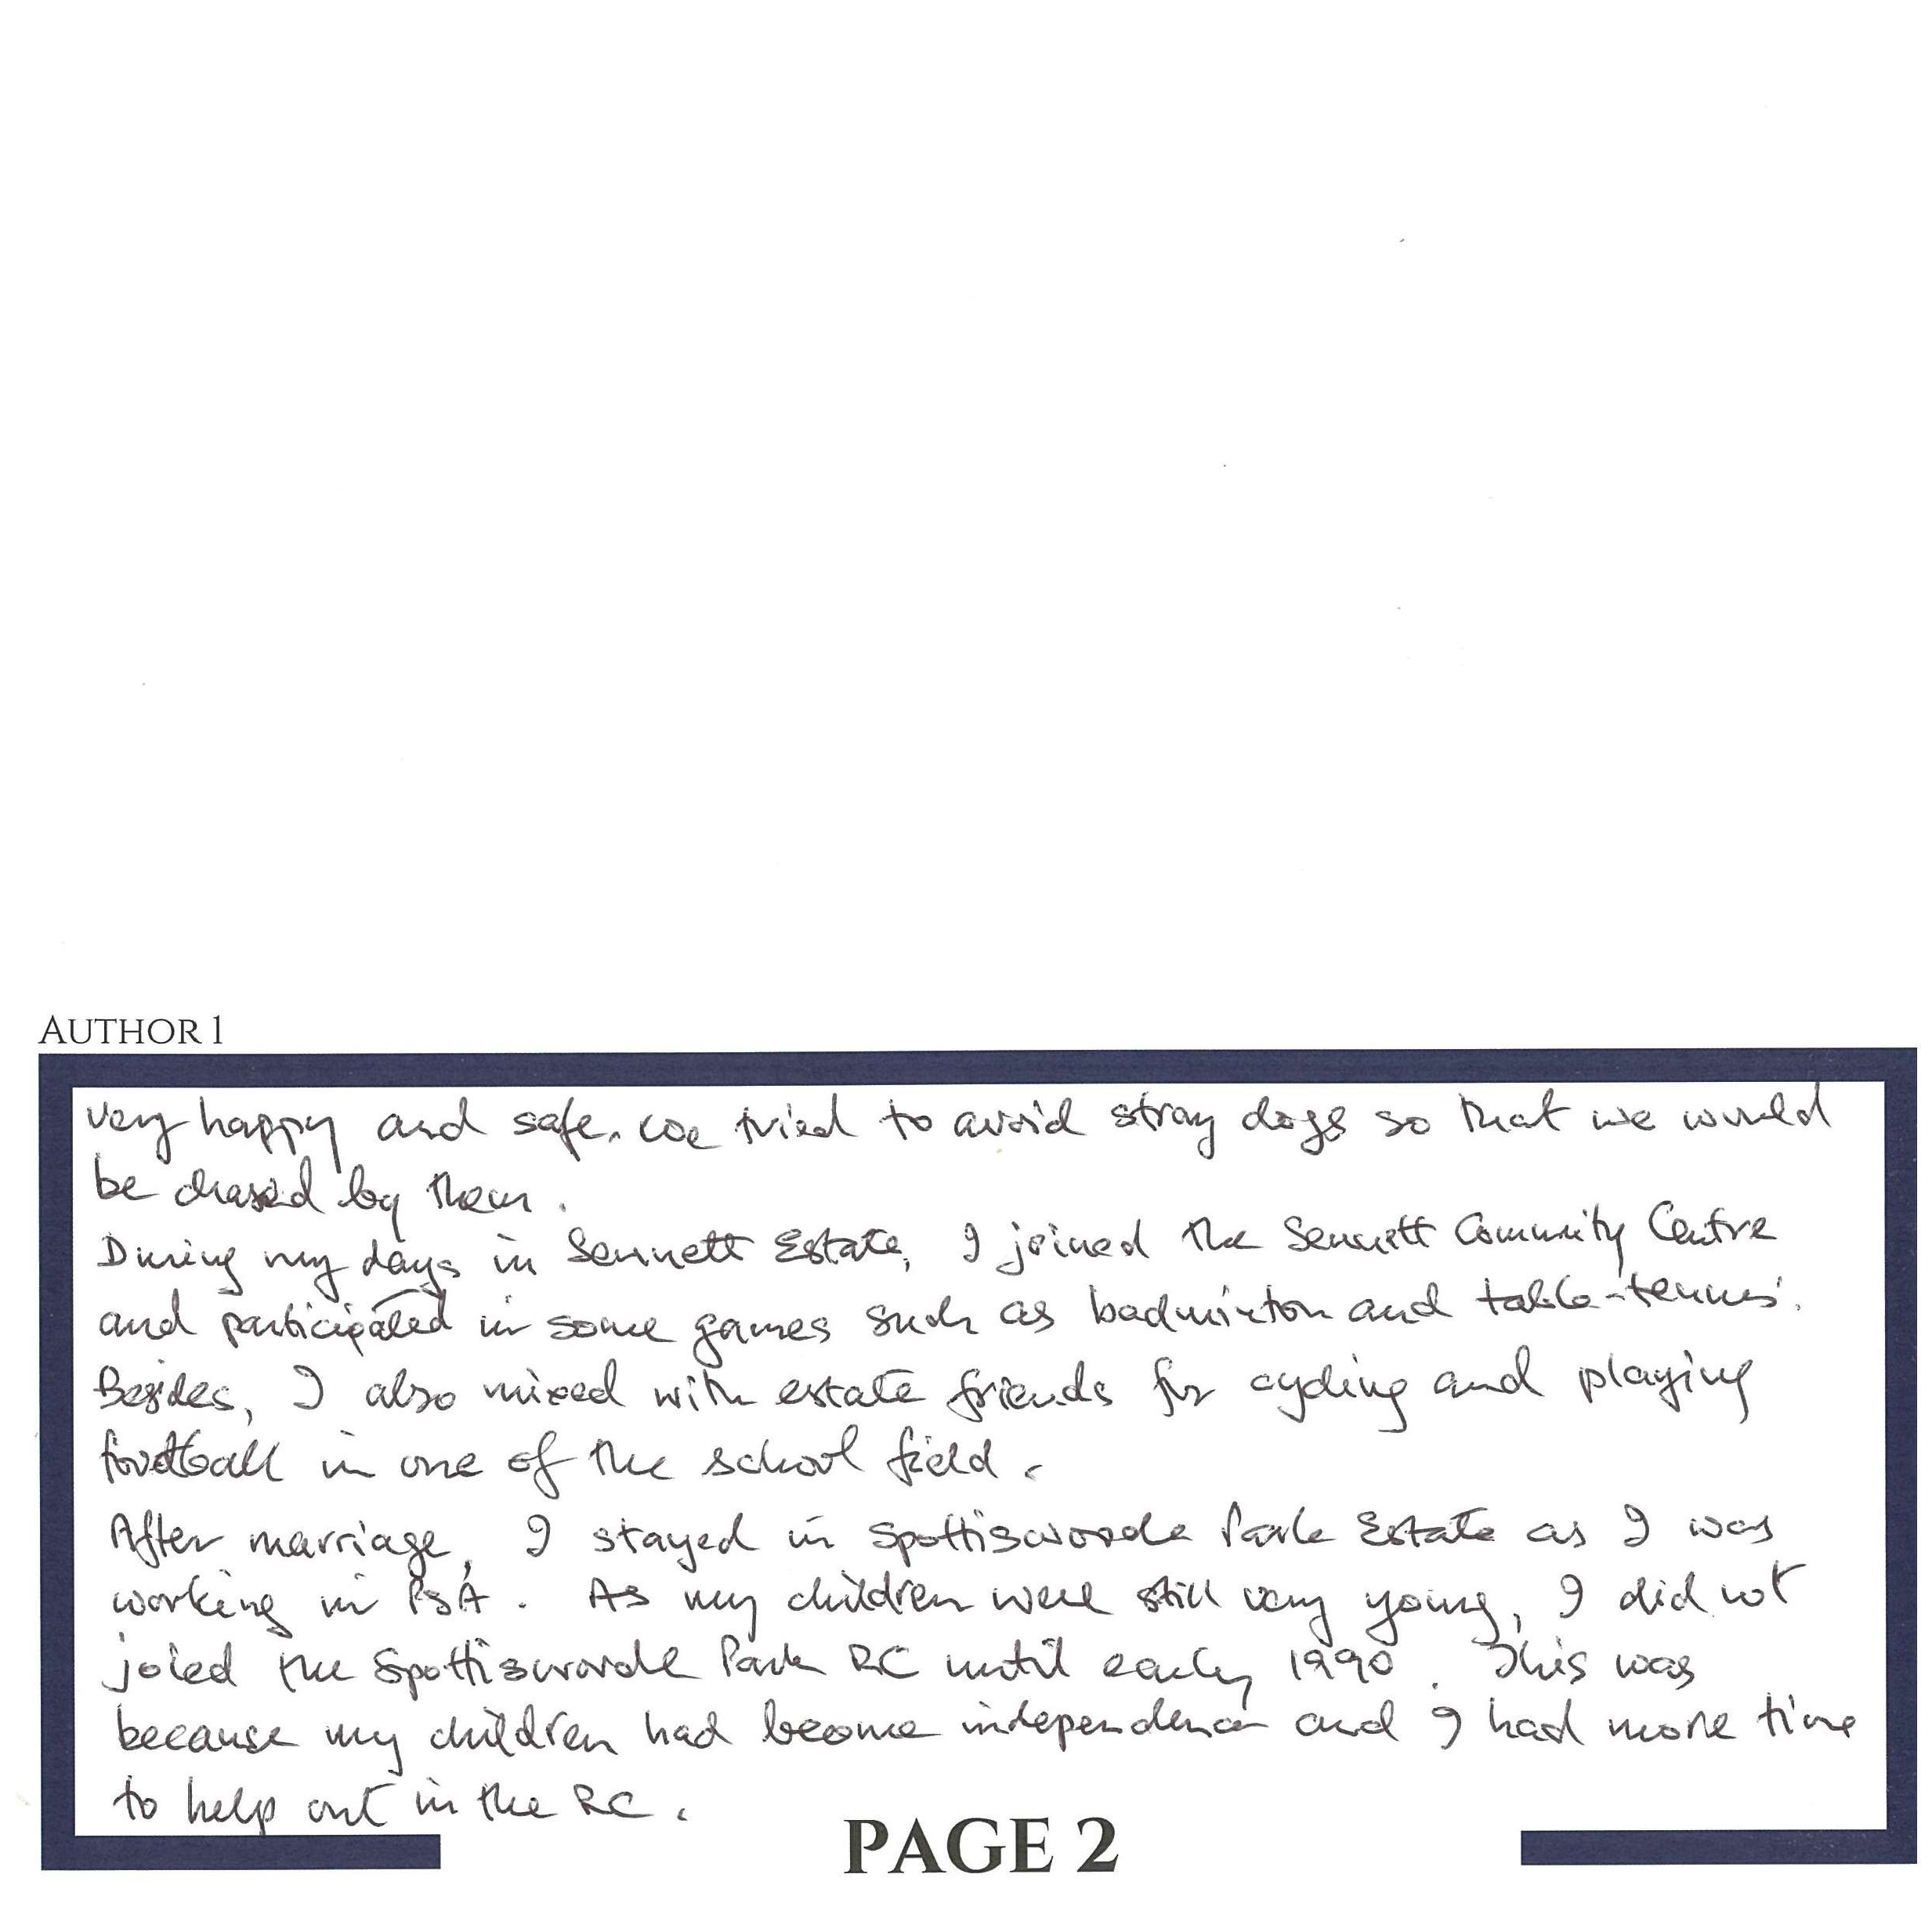 AUTHOR 1
very happy and safe. We tried to avoid stray dogs so that we would
be chased by them.
During my days in Sennett Estate, I joined the Sennett Community Centre
and participated in some games such as badminton and table-tennis.
Besides, I also mixed with estate friends for cycling and playing
football in one of the school field.
After marriage, I stayed in Spottiswoode Park Estate as I was
working in PSA. As my children were still very young, I did not
joied the Spottiswoode Park RC until early 1990. This was
because my children had become independence and I had more time
to help out in the RC.
PAGE 2